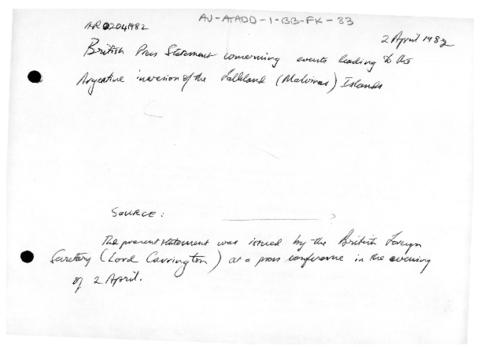 AV-AADD-1-BB-FK-33
AR02041982
2 April 1982
British Press Statement concerning events leading to the
Argentine invasion of the Falkland (Malvinas) Islands
SOURCE:
The present statement was issued by the British Foreign
Secretary (Lord Carrington) at a press conference in the evening
of 2 April.